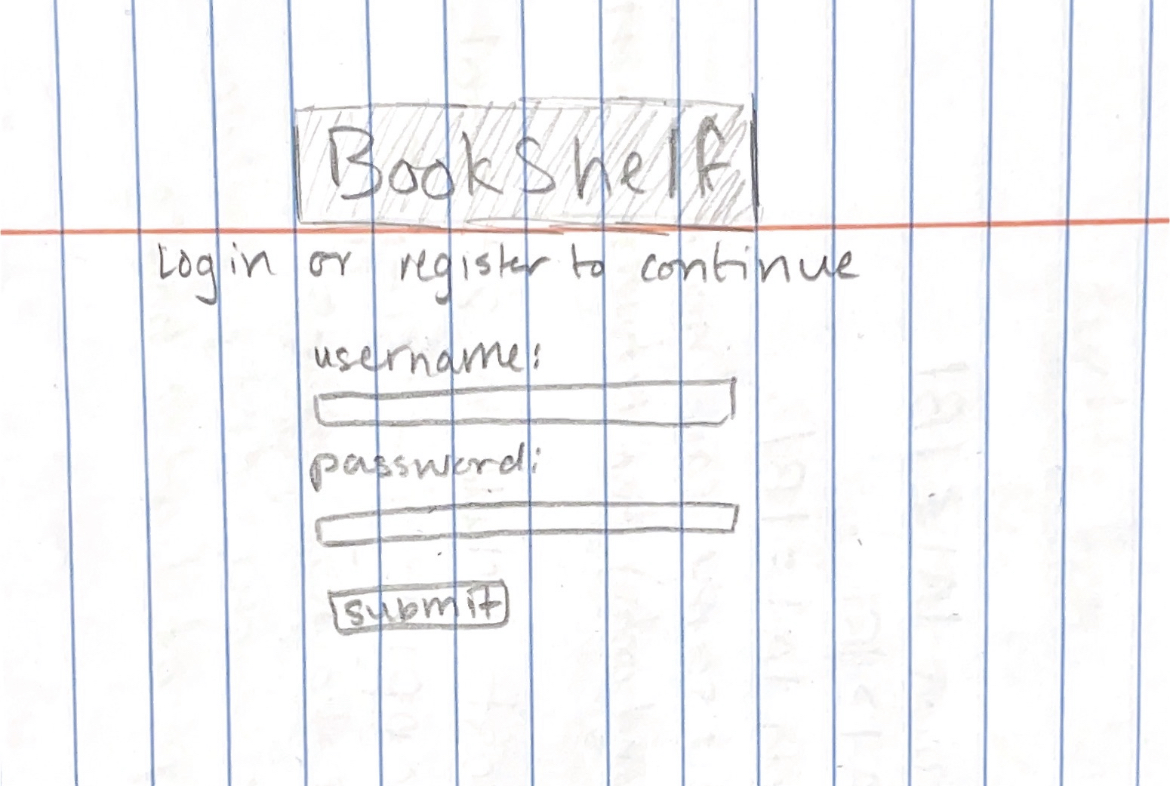 BookShelf
Login or register to continue
username:
password:
submit